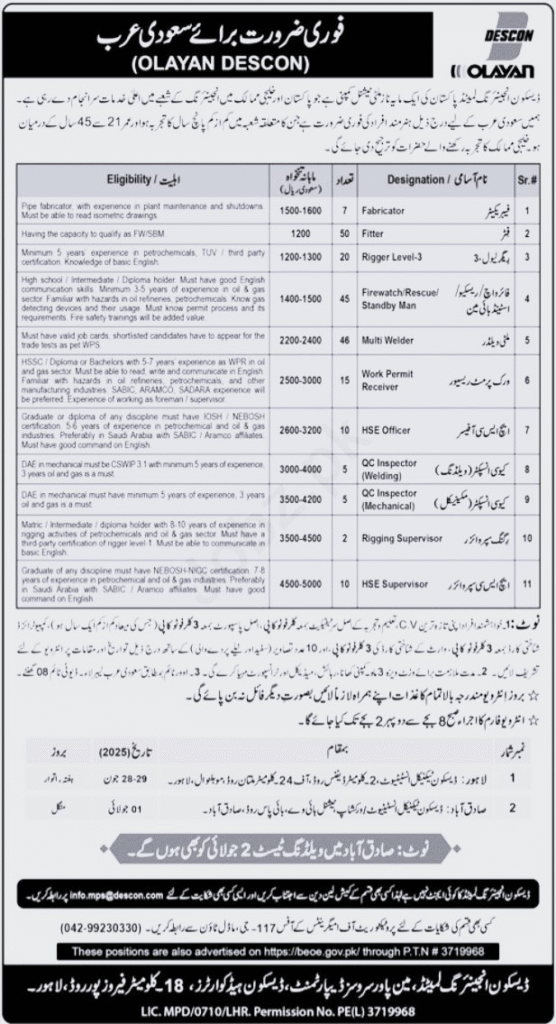 فوری ضرورت برائے سعودی عرب
(OLAYAN DESCON)
DESCON
OLAYAN
ڈیسکون انجینئرنگ لمیٹڈ پاکستان کی ایک مایہ ناز ملٹی نیشنل کمپنی ہے جو پاکستان اور خلیجی ممالک میں انجینئرنگ کے شعبے میں اعلیٰ خدمات سرانجام دے رہی ہے۔
ہمیں سعودی عرب کے لیے درج ذیل ہنرمند افراد کی فوری ضرورت ہے جن کا متعلقہ شعبہ میں کم از کم پانچ سال کا تجربہ ہو اور عمر 21 سے 45 سال کے درمیان
ہو۔ خلیجی ممالک کا تجربہ رکھنے والے حضرات کو ترجیح دی جائے گی۔
Sr.# نام آسامی / Designation تعداد ماہانہ تنخواہ (سعودی ریال) اہلیت / Eligibility
1 فیبریکیٹر Fabricator 7 1500-1600 Pipe fabricator, with experience in plant maintenance and shutdowns.
Must be able to read isometric drawings.
2 فٹر Fitter 50 1200 Having the capacity to qualify as FW/SBM.
3 رگر لیول-3 Rigger Level-3 20 1200-1300 Minimum 5 years' experience in petrochemicals, TUV / third party
certification. Knowledge of basic English.
4 فائر واچ/ریسکیو/ اسٹینڈ بائی مین Firewatch/Rescue/ Standby Man 45 1400-1500 High school / Intermediate / Diploma holder. Must have good English
communication skills. Minimum 3-5 years of experience in oil & gas
sector. Familiar with hazards in oil refineries, petrochemicals. Know gas
detecting devices and their usage. Must know permit process and its
requirements. Fire safety trainings will be added value.
5 ملٹی ویلڈر Multi Welder 46 2200-2400 Must have valid job cards, shortlisted candidates have to appear for the
trade tests as per WPS.
6 ورک پرمٹ ریسیور Work Permit Receiver 15 2500-3000 HSSC / Diploma or Bachelors with 5-7 years' experience as WPR in oil
and gas sector. Must be able to read, write and communicate in English.
Familiar with hazards in oil refineries, petrochemicals, and other
manufacturing industries. SABIC, ARAMCO, SADARA experience will
be preferred. Experience of working as foreman / supervisor
7 ایچ ایس ی آفیسر HSE Officer 10 2600-3200 Graduate or diploma of any discipline must have IOSH / NEBOSH
certification. 5-6 years of experience in petrochemical and oil & gas
industries. Preferably in Saudi Arabia with SABIC / Aramco affiliates.
Must have good command on English.
8 کیوسی انسپکٹر (ویلڈنگ) QC Inspector (Welding) 5 3000-4000 DAE in mechanical must be CSWIP 3.1 with minimum 5 years of experience,
3 years oil and gas is a must.
9 کیوسی انسپکٹر (مکینیکل) QC Inspector (Mechanical) 5 3500-4200 DAE in mechanical must have minimum 5 years of experience, 3 years
oil and gas is a must.
10 رگنگ سپروائزر Rigging Supervisor 2 3500-4500 Matric / Intermediate / diploma holder with 8-10 years of experience in
rigging activities of petrochemicals and oil & gas sector. Must have a
third party certification of rigger level-1. Must be able to communicate in
basic English
11 ایچ ایس سی سپروائزر HSE Supervisor 10 4500-5000 Graduate of any discipline must have NEBOSH-NIGC certification. 7-8
years of experience in petrochemical and oil & gas industries. Preferably
in Saudi Arabia with SABIC / Aramco affiliates. Must have good
command on English.
نوٹ: 1۔ خواہشمند افراد اپنی تازہ ترین C.V، تعلیم و تجربہ کے اصل سرٹیفکیٹ بمعہ کلر فوٹو کاپی، اصل پاسپورٹ بمعہ 3 کلر فوٹو کاپی (جس کی میعاد کم از کم ایک سال ہو)، کمپیوٹرائزڈ
شناختی کارڈ بمعہ 3 کلر فوٹو کاپی، وارث کے شناختی کارڈ کی 3 کلر فوٹو کاپی، اور 10 عدد تصاویر (سفید اور نیلے پردے والی) کے ساتھ درج ذیل تواریخ اور مقامات پر انٹرویو کے لئے
تشریف لائیں۔ 2۔ مدت ملازمت برائے وزٹ ویزہ 3 ماہ، کمپنی کھانا، رہائش، میڈیکل اور ٹرانسپورٹ مہیا کرے گی۔ 3۔ اوورٹائم بمطابق سعودی عرب لیبر لاء۔ ڈیوٹی ٹائم 08 گھنٹے۔
☆ بروز انٹرویو مندرجہ بالا تمام کاغذات اپنے ہمراہ لازماً لائیں بصورت دیگر فائل نہ بن پائے گی۔
☆ انٹرویو فارم کا اجراء صبح 8 بجے سے دوپہر 2 بجے تک کیا جائے گا۔
نمبر شمار بمقام تاریخ (2025) بروز
1 لاہور: ڈیسکون ٹیکنیکل انسٹیٹیوٹ، 2-کلومیٹر ڈیفنس روڈ، آف 24-کلومیٹر ملتان روڈ، موہلنوال، لاہور۔ 28-29 جون ہفتہ، اتوار
2 صادق آباد: ڈیسکون ٹیکنیکل انسٹیٹیوٹ/ورکشاپ نیشنل ہائی وے، بائی پاس روڈ، صادق آباد۔ 01 جولائی منگل
نوٹ: صادق آباد میں ویلڈنگ ٹیسٹ 2 جولائی کو بھی ہوں گے۔
ڈیسکون انجینئرنگ لمیٹڈ کا کوئی ایجنٹ نہیں ہے لہٰذا کسی بھی قسم کے کمیشن لین دین سے اجتناب کریں اور ایسی کسی بھی شکایت کے لئے info.mps@descon.com پر رابطہ کریں۔
کسی بھی قسم کی شکایات کے لئے پروٹیکٹوریٹ آف امیگرینٹس کے آفس 117- جی، ماڈل ٹاؤن سے رابطہ کریں۔ (042-99230330)
These positions are also advertised on https://beoe.gov.pk/ through P.T.N # 3719968
ڈیسکون انجینئرنگ لمیٹڈ، مین پاور سروسز ڈیپارٹمنٹ، ڈیسکون ہیڈ کوارٹرز، 18-کلومیٹر فیروز پور روڈ، لاہور۔
LIC. MPD/0710/LHR. Permission No. PE(L) 3719968